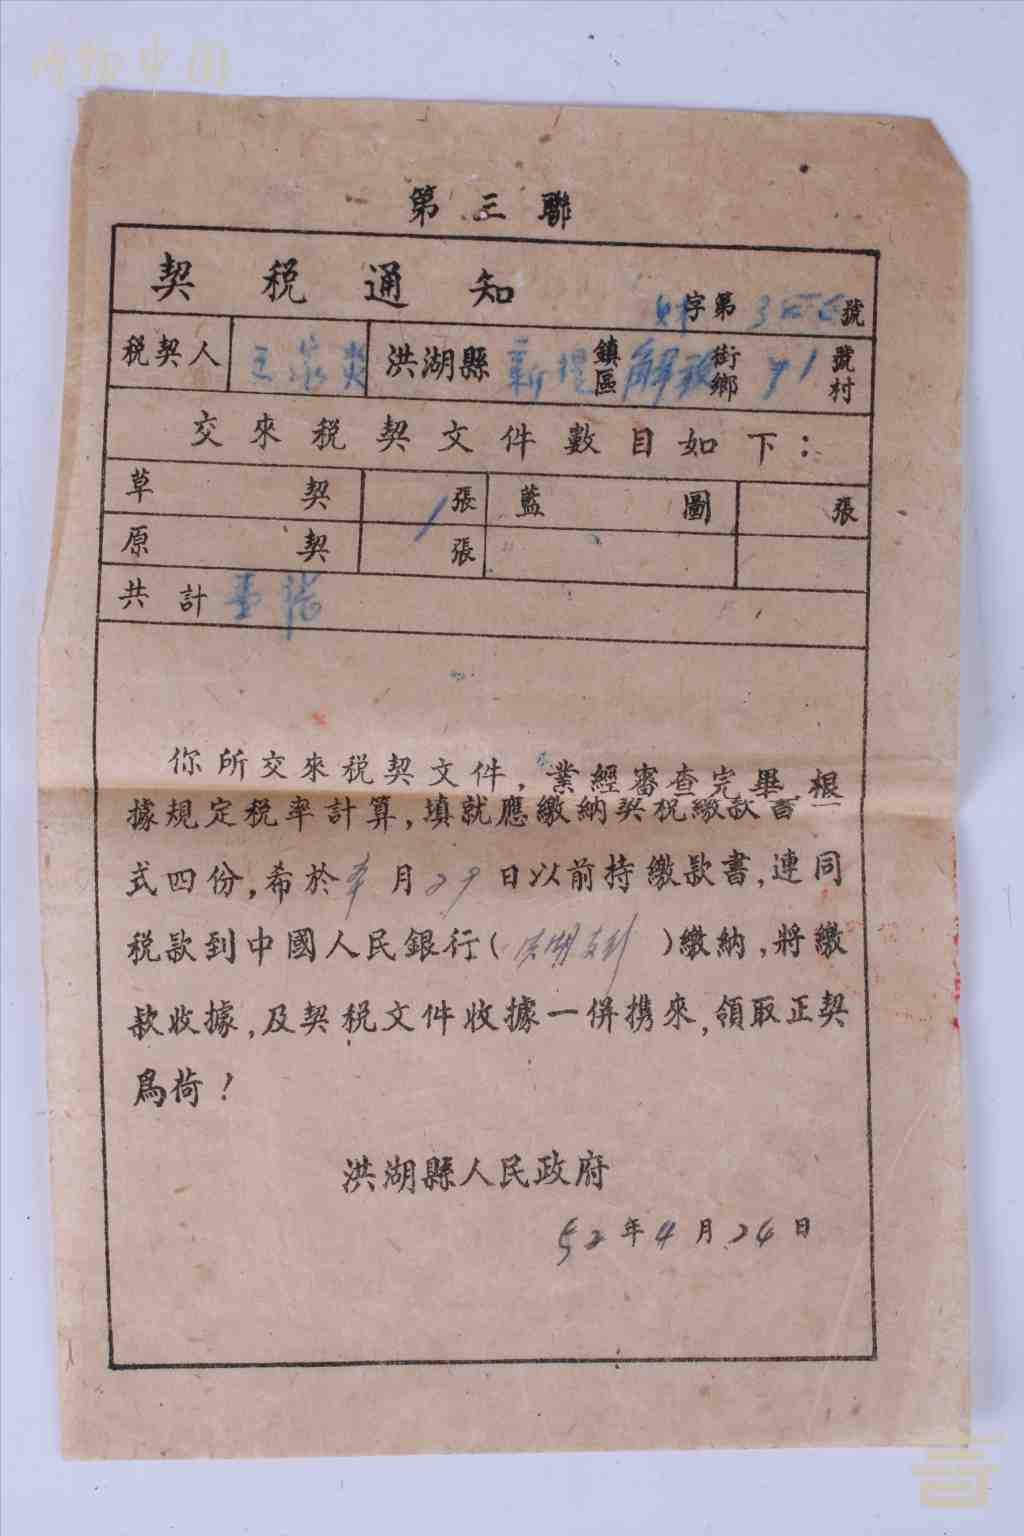 第三聯
契税通知
財字第 號
税契人 王 洪湖縣 新堤 鎮區 解放 街鄉 91 號村
交來税契文件數目如下：
草契 1張 藍圖 張
原契 張
共計 壹張
你所交來税契文件，業經審查完畢，根
據規定税率計算，填就應繳納契税繳款書一
式四份，希於本月29日以前持繳款書，連同
税款到中國人民銀行（洪湖支行）繳納，將繳
款收據，及契税文件收據一併携來，領取正契
爲荷！
洪湖縣人民政府
52年4月24日